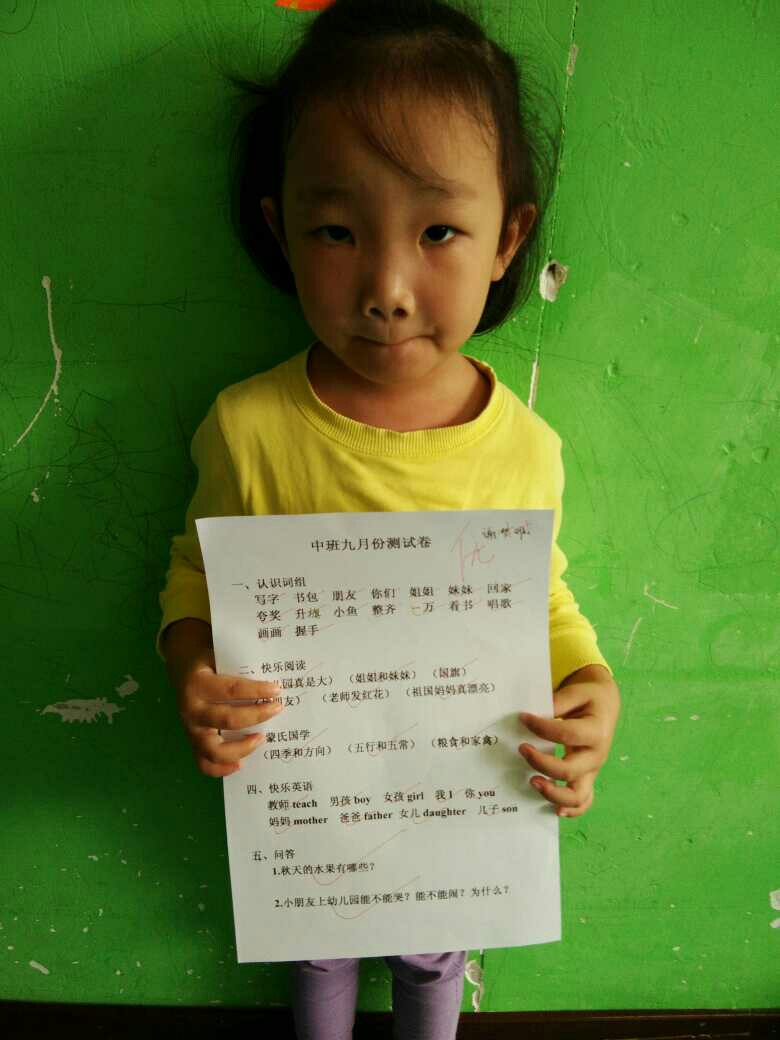 中班九月份测试卷
优
一、认识词组
写字 书包 朋友 你们 姐姐 妹妹 回家
夸奖 升旗 小鱼 整齐 一万 看书 唱歌
画画 握手
二、快乐阅读
儿园真是大） （姐姐和妹妹） （国旗）
朋友） （老师发红花） （祖国妈妈真漂亮）
蒙氏国学
（四季和方向） （五行和五常） （粮食和家禽）
四、快乐英语
教师 teach 男孩 boy 女孩 girl 我 I 你 you
妈妈 mother 爸爸 father 女儿 daughter 儿子 son
五、问答
1.秋天的水果有哪些？
2.小朋友上幼儿园能不能哭？能不能闹？为什么？